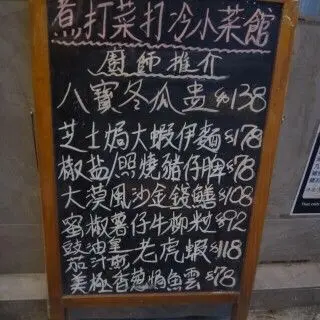 煮打菜打冷小菜館
廚師推介
八寶冬瓜盅 $138
芝士焗大蝦伊麵 $178
椒盐/照燒豬仔脾 $78
大漠風沙金錢鱔 $108
蜜椒薯仔牛柳粒 $92
豉油皇
茄汁煎 老虎蝦 $118
美極香葱焗魚雲 $78